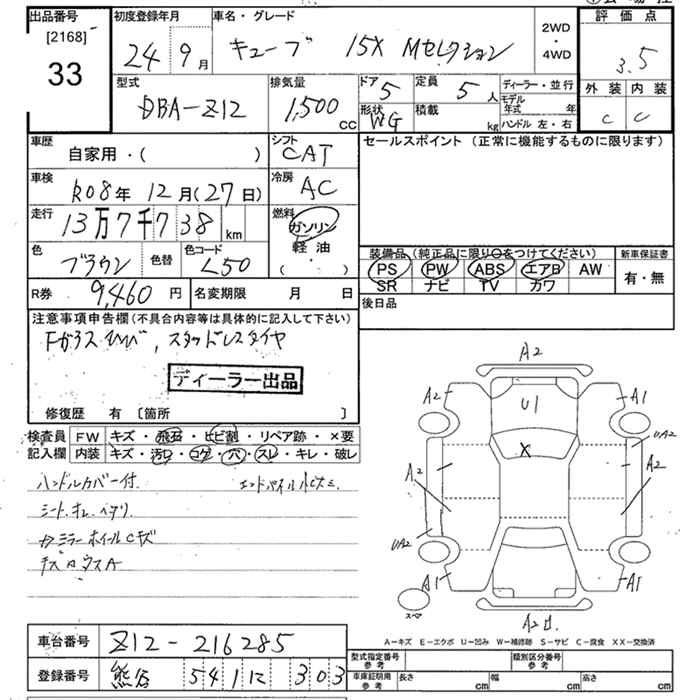 出品番号
[2168]
33
初度登録年月
24 9月
車名・グレード
キューブ 15X Mセレクション
2WD
・
4WD
評価点
3.5
外装 内装
C C
型式
DBA-Z12
排気量
1,500 cc
ドア 5
定員 5人
形状 WG
積載 kg
ディーラー・並行
モデル年式 年
ハンドル 左・右
車歴
自家用・( )
シフト
CAT
セールスポイント (正常に機能するものに限ります)
車検
R08年 12月(27日)
冷房
AC
走行
13万7千738 km
燃料
ガソリン
軽油
( )
色
ブラウン
色替
色コード
L50
装備品(純正品に限り○をつけてください)
PS PW ABS エアB AW
SR ナビ TV カワ
新車保証書
有・無
R券 9,460円
名変期限 月 日
後日品
注意事項申告欄(不具合内容等は具体的に記入して下さい)
Fガラスヒビ, スタッドレスタイヤ
ディーラー出品
修復歴 有 〔箇所 〕
検査員
記入欄
FW キズ・飛石・ヒビ割・リペア跡・×要
内装 キズ・汚レ・コゲ・穴・スレ・キレ・破レ
ハンドルカバー付
シート
ミラー ホイールCキズ
A2
U1
X
A2
A1
UA2
A2
A2
UA2
A1
A1
スペア
A2
A−キズ E−エクボ U−凹み W−補修跡 S−サビ C−腐食 XX−交換済
車台番号 Z12-216285
登録番号 熊谷 541 303
型式指定番号
参考
類別区分番号
参考
車庫証明用
参考
長さ cm
幅 cm
高さ cm